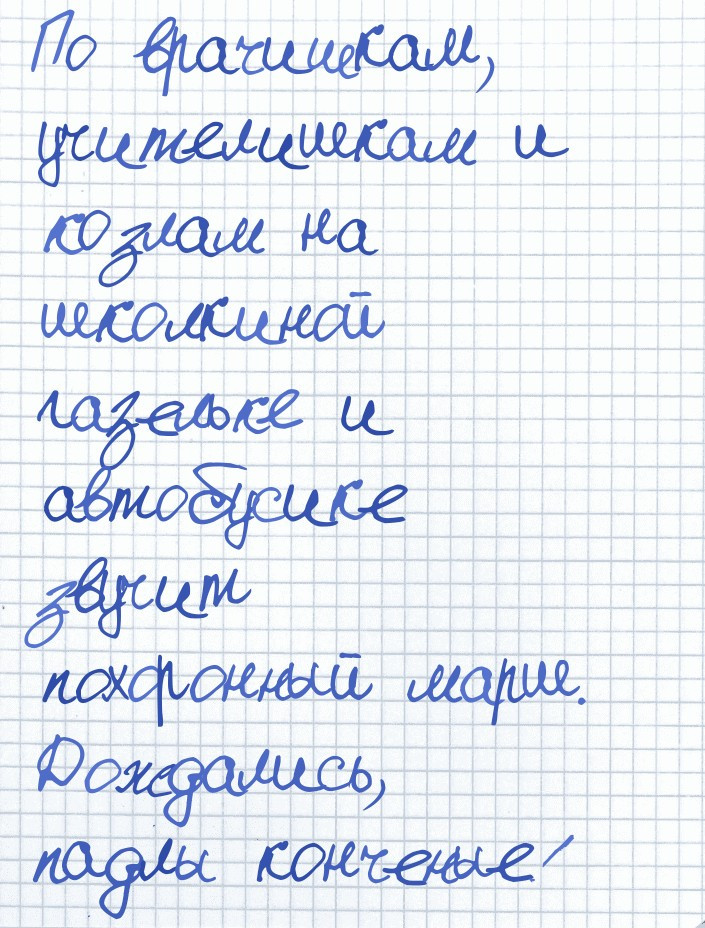 По врачишкам,
учителишкам и
козлам на
школкиной
газельке и
автобусике
звучит
похоронный марш.
Дождались,
падлы конченые!